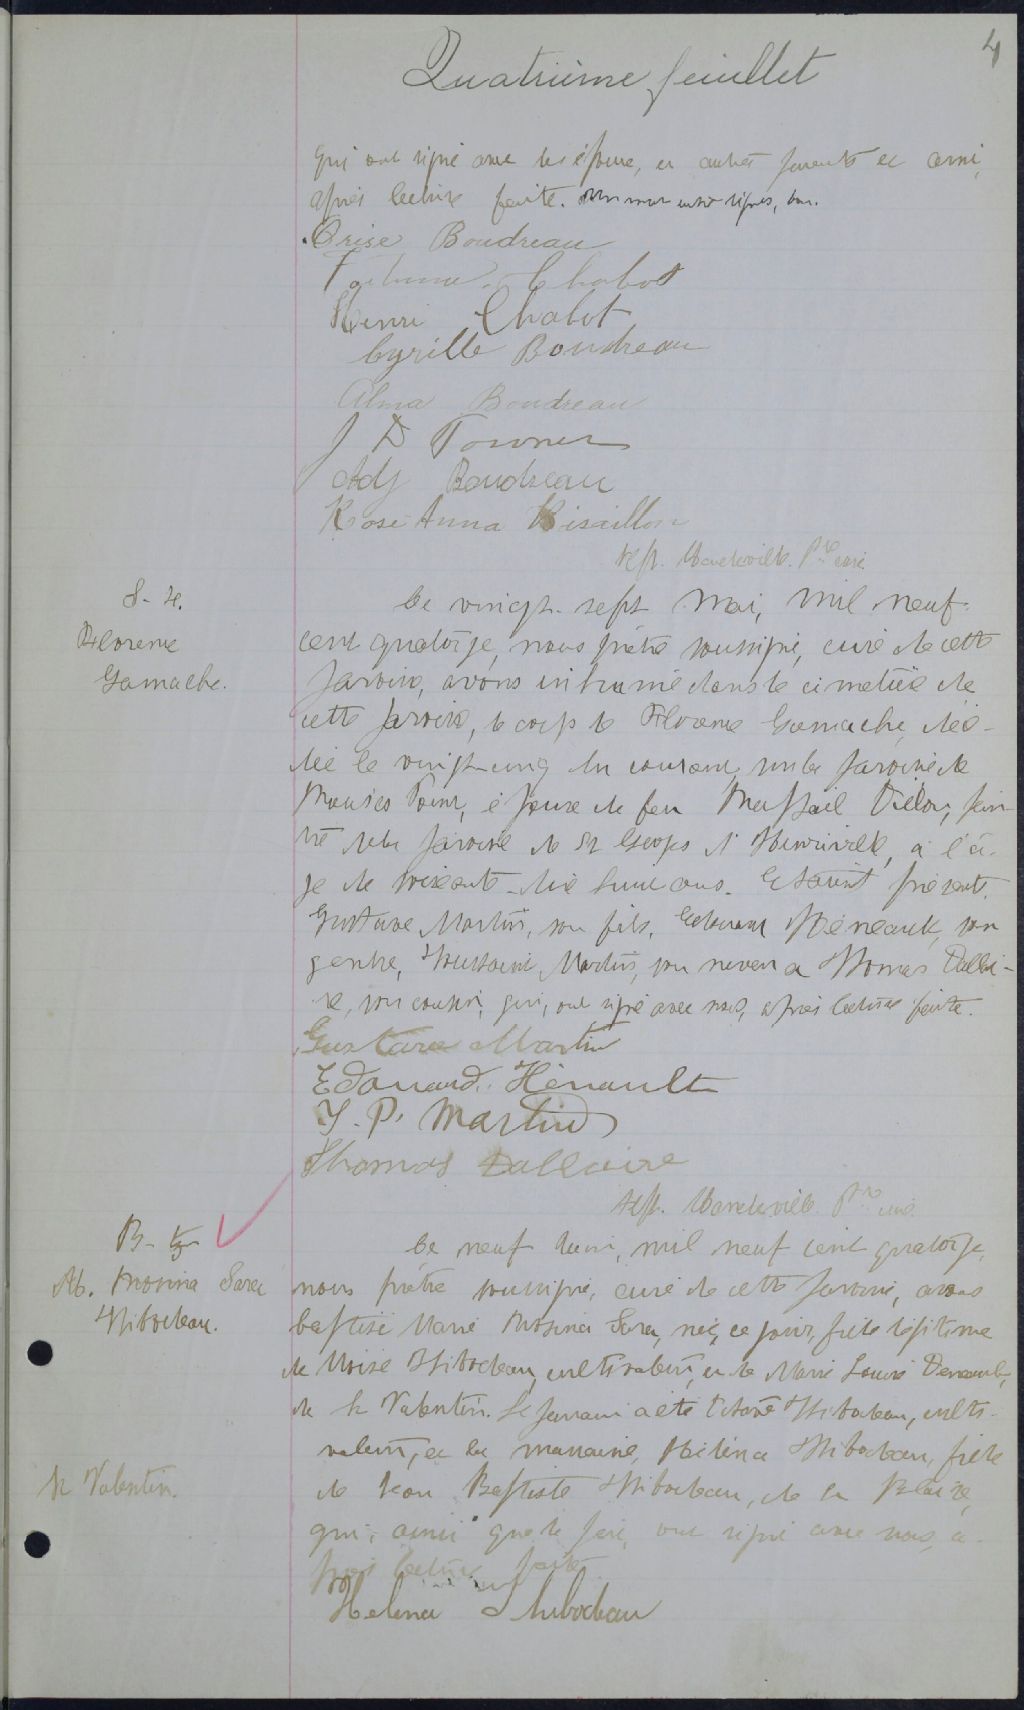 4
Quatrième feuillet
qui ont signé avec les époux, et autres parents et amis,
après lecture faite.
Orise Boudreau
Chabot
Henri Chabot
Cyrille Boudreau
Alma Boudreau
J D Towner
Adj Boudreau
Rose Anna Bisaillon
Ptre curé
S-4.
Florence
Gamache.
Ce vingt-sept Mai, mil neuf-
cent quatorze, nous prêtre soussigné, curé de cette
paroisse, avons inhumé dans le cimetière de
cette paroisse, le corps de Florence Gamache, décé-
dée le vingt-cinq du courant, en la paroisse de
épouse de feu
de la paroisse de St Georges d'Henriville, à l'â-
ge de soixante-dix ans. Etaient présents,
Gustave Martin, son fils, Edouard Héneault, son
gendre, Toussaint Martin, son neveu et Thomas Dallai-
re, son cousin, qui, ont signé avec nous, après lecture faite.
Gustave Martin
Edouard Hénault
T. P. Martin
Thomas Dallaire
Ptre curé
B-
M. Rosina Sara
Thibodeau.
Ce neuf Juin, mil neuf cent quatorze,
nous prêtre soussigné, curé de cette paroisse, avons
baptisé Marie Rosina Sara, née, ce jour, fille légitime
de Moise Thibodeau, cultivateur, et de Marie Louise
de St Valentin. Le parrain a été Thibodeau, culti-
vateur, et la marraine, Héléna Thibodeau, fille
St Valentin.
de Jean Baptiste Thibodeau, de
qui, ainsi que le père, ont signé avec nous, a-
près lecture faite.
Helena Thibodeau